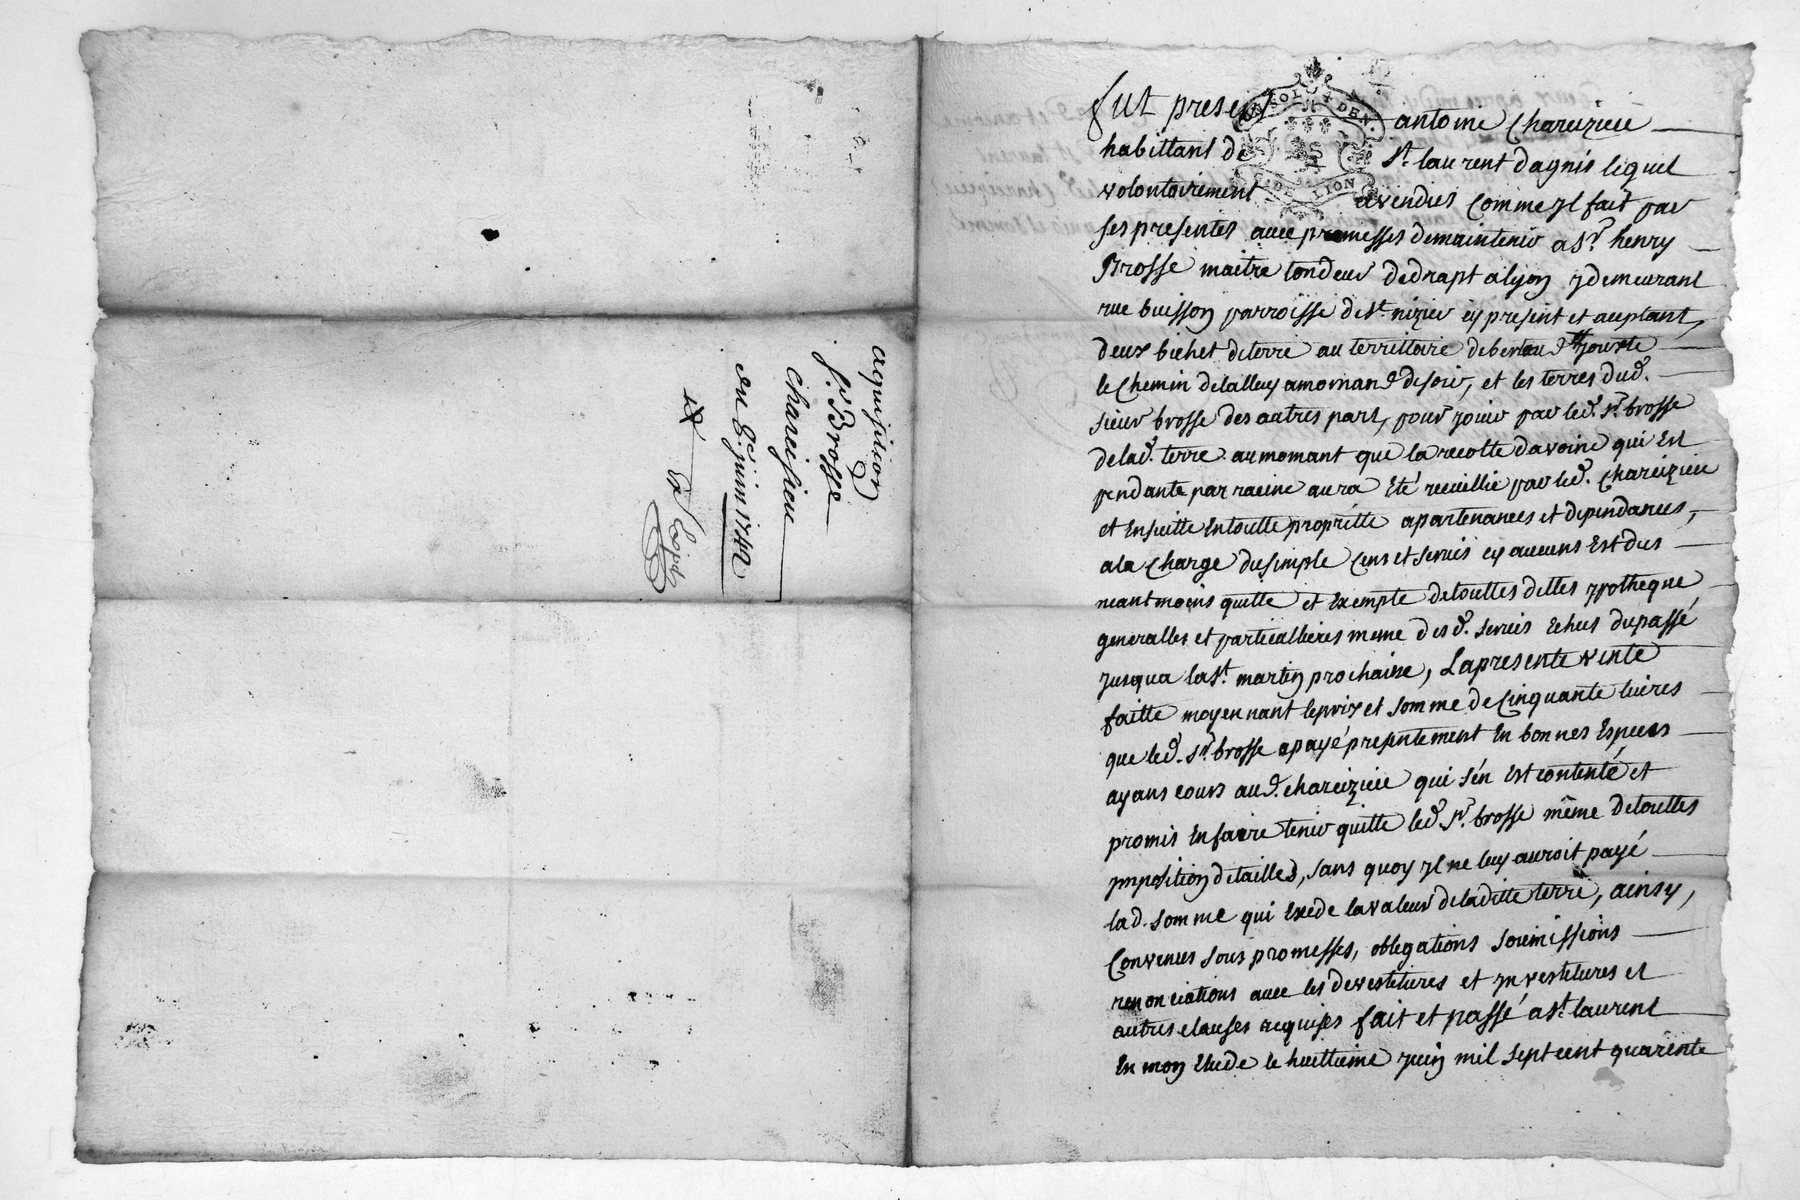 acquisition
Sr. Brosse
chareisieu
du 8e. juin 1742
UN SOL 4 DEN.
G. DE LION
fut present antoine Chareizieu
habittant de St. laurent dagnis lequel
volontairement a vendues Comme yl fait par
ses presentes avec promesses de maintenir a Sr. henry
Brosse maitre tondeur de drapt a lyon y demeurant
rue buisson parroisse de St. nizier cy present et aceptant,
deux bichet de terre au territtoire de jouxte
le Chemin de lallay a mornand de soir, et les terres dud.
sieur brosse des autres part, pour jouir par led. Sr. brosse
de lad. terre au momant que la recolte davoine qui Est
pendante par racine aura Eté recueillie par led. Chareizieu
et Ensuitte En toutte propriette apartenances et dependances,
a la Charge du simple Cens et servis cy aucuns Est dus
neantmoins quitte et Exempte de touttes dettes ypotheque
generalles et particullieres meme des d. servis Echus du passé
jusqua la St. martin prochaine, La presente vente
faitte moyennant le prix et somme de Cinquante livres
que led. Sr. brosse a payé presentement En bonnes Especes
ayans cours aud. chareizieu qui s'en Est contenté et
promis En faire tenir quitte led. Sr. brosse même de touttes
ymposition de tailles, sans quoy yl ne luy auroit payé
lad. somme qui Exede la valeur de laditte terre, ainsy,
Convenus sous promesses, obligations soumissions
renonciations avec les devestitures et ynvestitures et
autres clauses requises fait et passé a St. laurent
En mon Etude le huittieme juin mil sept cent quarente